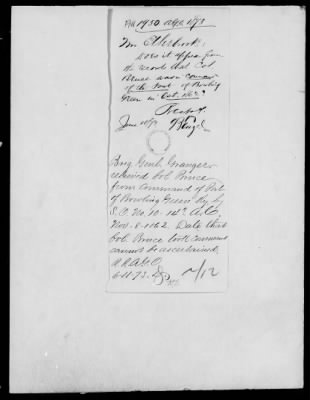 1950 A.G.O. 1873
Mr. Etherbrook,
Does it appear from
the records that Col
Bruce was in comm'd
of the Post of Bowling
Green in Oct. 1862?
Respy.
June
Brig. Genl. Granger
relieved Col. Bruce
from command of Post
of Bowling Green Ky by
S.O. No. 10. A.C.
Nov. 8-1862. Date that
Col. Bruce took command
cannot be ascertained.
A.G.O.
6-11-73.